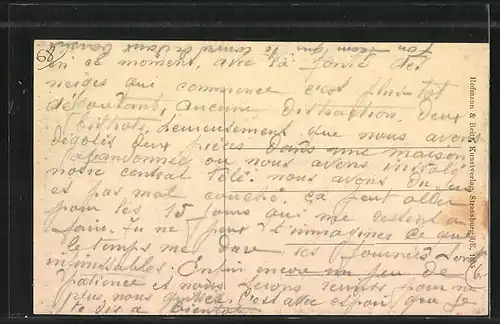 68
en ce moment, avec la fonte des
neiges qui commence c'est plutôt
dégoutant, aucune distraction. Deux
bistrots, heureusement que nous avons
dégotés deux pièces dans une maison
abandonnée ou nous avons installé
notre central télé. nous avons du feu
et pas mal couché. ça peut aller
pour les 15 jours qui me restent a
faire. tu ne peux t'immaginer ce que
le temps me dure, les journées sont
interminables. Enfin encore un peu de
patience et nous serons réunis pour ne
plus nous quitter. C'est avec espoir que je
te dis a bientot
Hofmann & Reitz, Kunstverlag, Strassburg i/E,